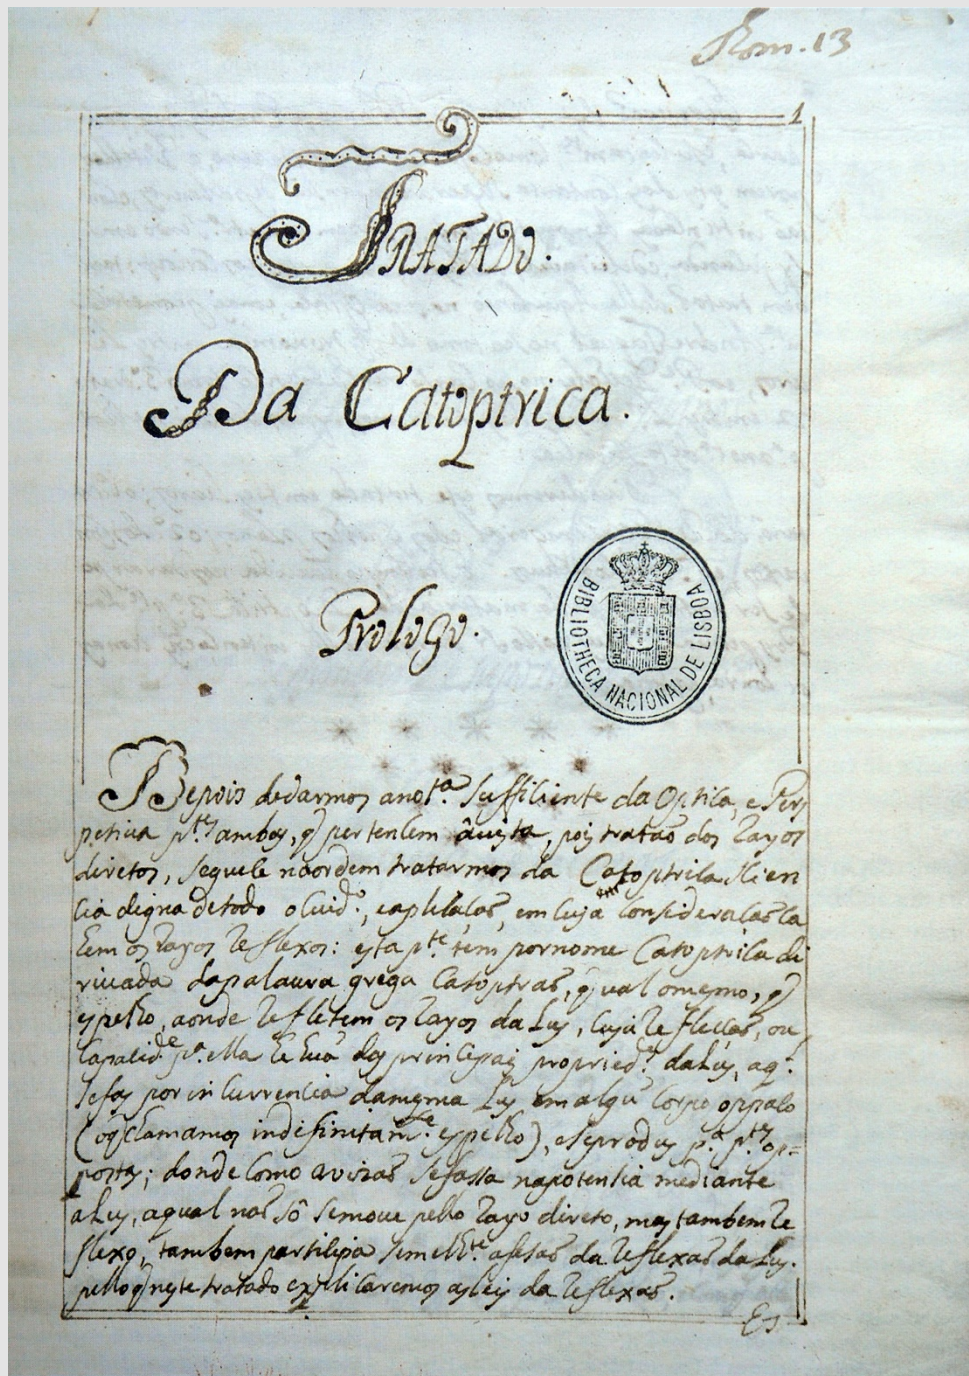 Rom. 13
1
TRATADO.
Da Catoptrica.
Prologo.
BIBLIOTHECA NACIONAL DE LISBOA
Depois dedarmos anotª. sufficiente da Optica, e Pers
petiva pt.es ambas, q pertencem âvista, pois tratão dos rayos
diretos, seguese naordem tratarmos da Catoptrica scien
cia digna detodo o cuid.º, eaplicasão, em cuja consideracão ca
em os rayos reflexos: esta p.te tem pornome Catoptrica di
rivada dapalaura grega Catoptras, q val omesmo, q
espelho, aonde refletem os rayos da Lus, cuja reflecsão, ou
capacid.e p.ª ella he huã das principais propried.es da Lus, a q.
sefas por incurrencia damesma Lus em algũ corpo oppaco
(oq chamamos indefinitam.te espelho), eseprodus p.ª p.te op=
posta; donde como avizão sefassa napotencia mediante
a Lus, aqual não sô semove pello rayo direto, mas tambem re
flexo, tambem participa semelh.te afesão da reflexão da Lus.
pelloq neste tratado explicaremos asleis da reflexão.
Es